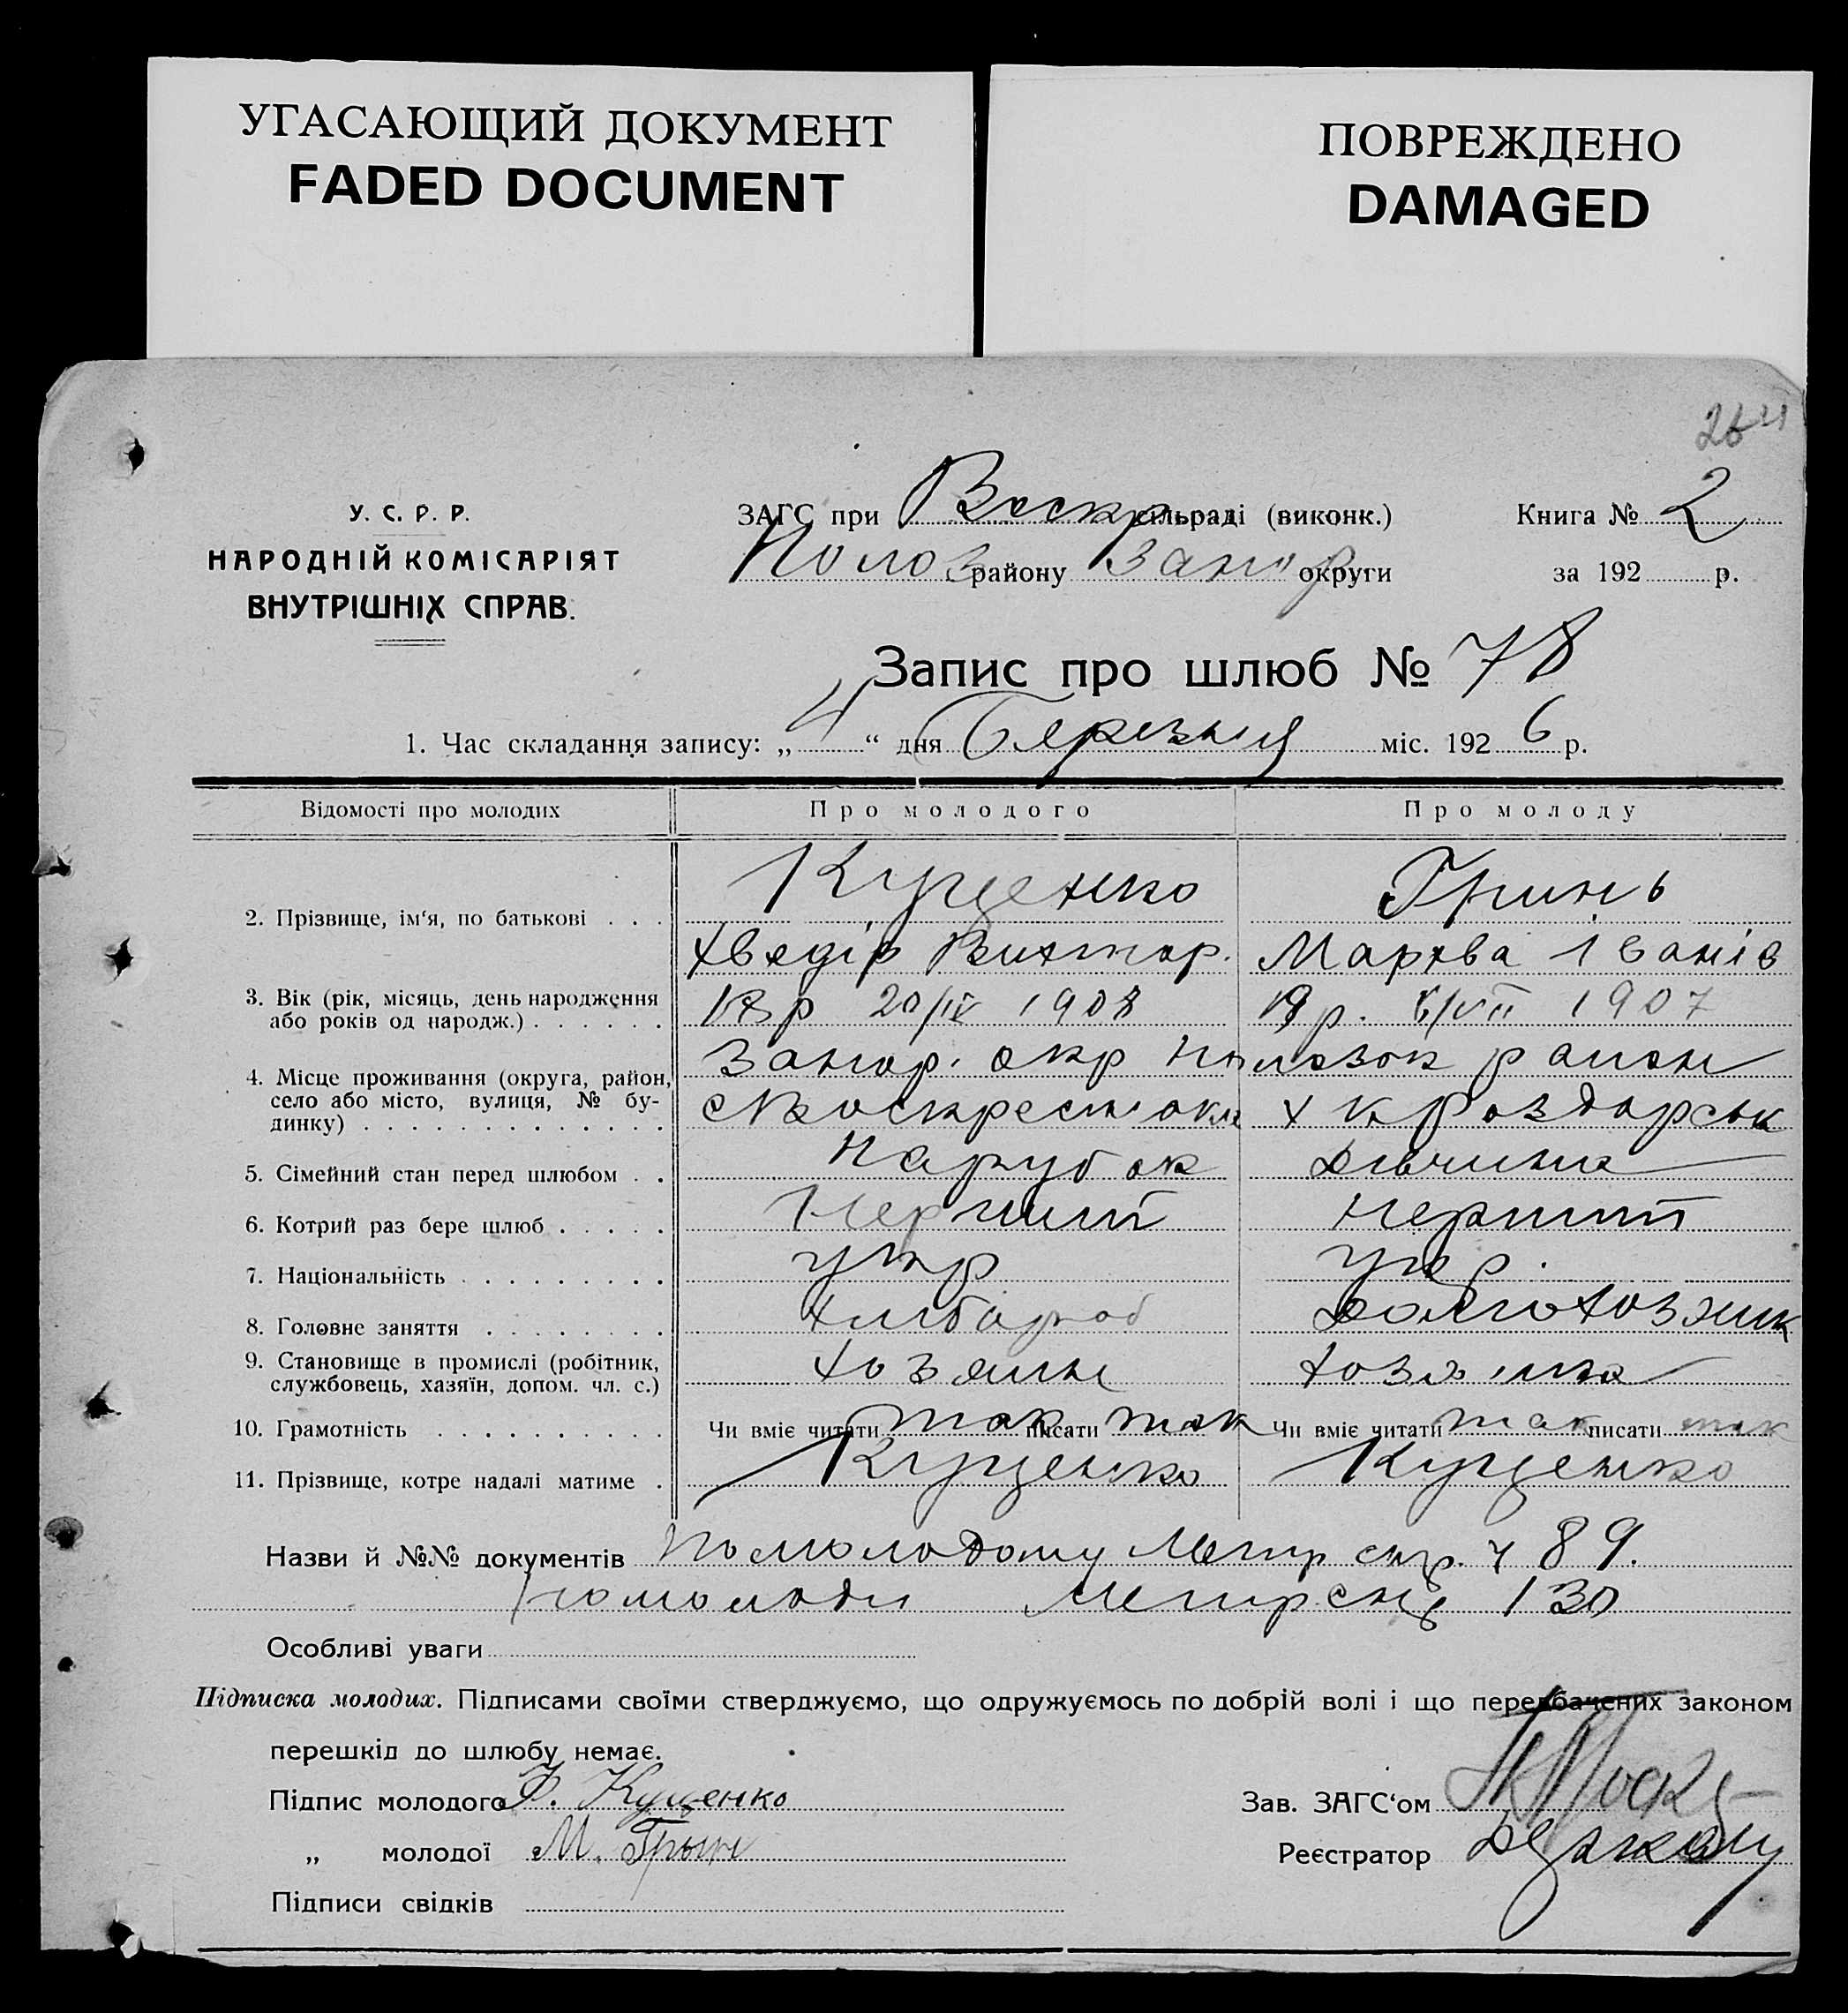 УГАСАЮЩИЙ ДОКУМЕНТ
FADED DOCUMENT
ПОВРЕЖДЕНО
DAMAGED
264
У. С. Р. Р.
НАРОДНІЙ КОМІСАРІЯТ
ВНУТРІШНІХ СПРАВ.
ЗАГС при Воскр сільраді (виконк.)
Полог району Запор округи
Книга № 2
за 192 р.
Запис про шлюб № 78
1. Час складання запису: „4“ дня Березня міс. 1926 р.
Відомості про молодих Про молодого Про молоду
2. Прізвище, ім‘я, по батькові . . . Кущенко Гринь
Хведір Виктор. Марква Іванів
3. Вік (рік, місяць, день народження
або років од народж.) . . . . . . 18 р 20/IV 1908 19 р. /VII 1907
4. Місце проживання (округа, район,
село або місто, вулиця, № бу-
динку) . . . . . . . . . . . . .
Запор. окр район
с Воскресенка х
5. Сімейний стан перед шлюбом . . Парубок дівчина
6. Котрий раз бере шлюб . . . . . Перший перший
7. Національність . . . . . . . . . укр укр.
8. Головне заняття . . . . . . . . хлібороб
9. Становище в промислі (робітник,
службовець, хазяїн, допом. чл. с.) хозяин хозяйка
10. Грамотність . . . . . . . . . . Чи вміє читати так писати так Чи вміє читати так писати так
11. Прізвище, котре надалі матиме . Кущенко Кущенко
Назви й №№ документів По молодому Метр ч 89.
по молоді метр 130
Особливі уваги
Підписка молодих. Підписами своїми стверджуємо, що одружуємось по добрій волі і що передбачених законом
перешкід до шлюбу немає.
Підпис молодого Ф. Кущенко
„ молодої М. Грынь
Підписи свідків
Зав. ЗАГС‘ом
Реєстратор